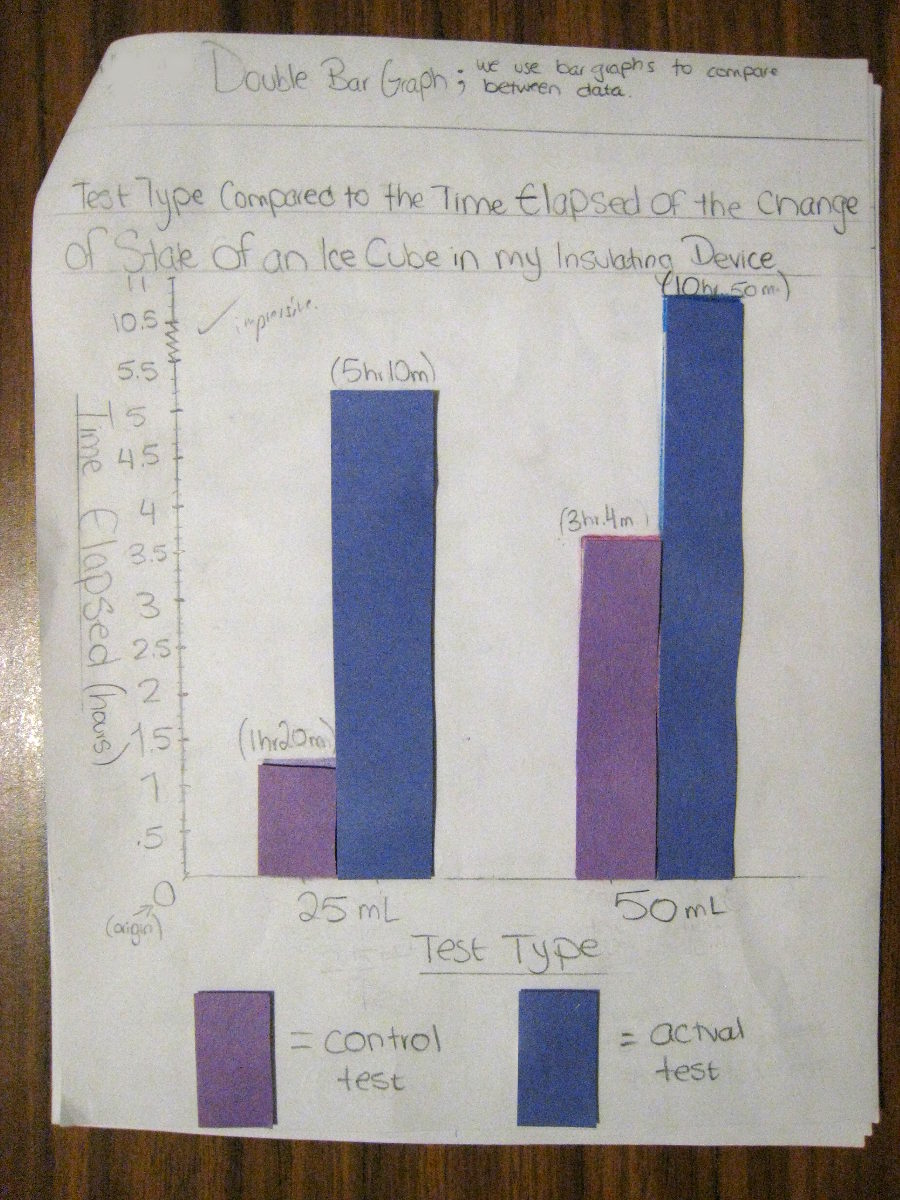 Double Bar Graph; we use bar graphs to compare
between data.
Test Type Compared to the Time Elapsed of the Change
of State of an Ice Cube in my Insulating Device
11
10.5
5.5
5
4.5
4
3.5
3
2.5
2
1.5
1
.5
0
(origin)
Time Elapsed (hours)
impressive.
(1hr20m)
(5hr10m)
(3hr.4m)
(10hr.50m.)
25 mL
50 mL
Test Type
= control
test
= actual
test